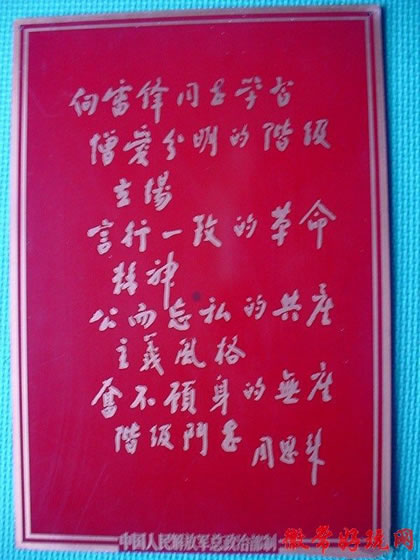 向雷鋒同志学習
憎愛分明的階級
立場
言行一致的革命
精神
公而忘私的共產
主義風格
奮不顧身的無產
階級鬥志
周恩来
中国人民解放军总政治部制
徽章
网